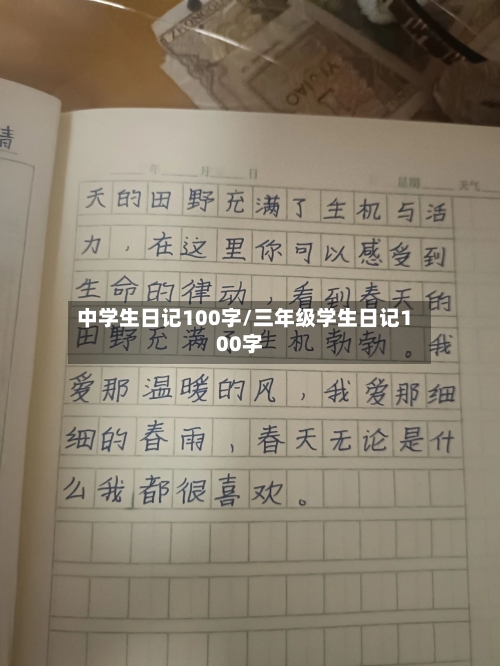 年 月 日 星期 天气
天的田野充满了生机与活
力，在这里你可以感受到
生命的律动，看到春天的
中学生日记100字/三年级学生日记1
00字
田野充满了生机勃勃。我
爱那温暖的风，我爱那细
细的春雨，春天无论是什
么我都很喜欢。
YIJIAO